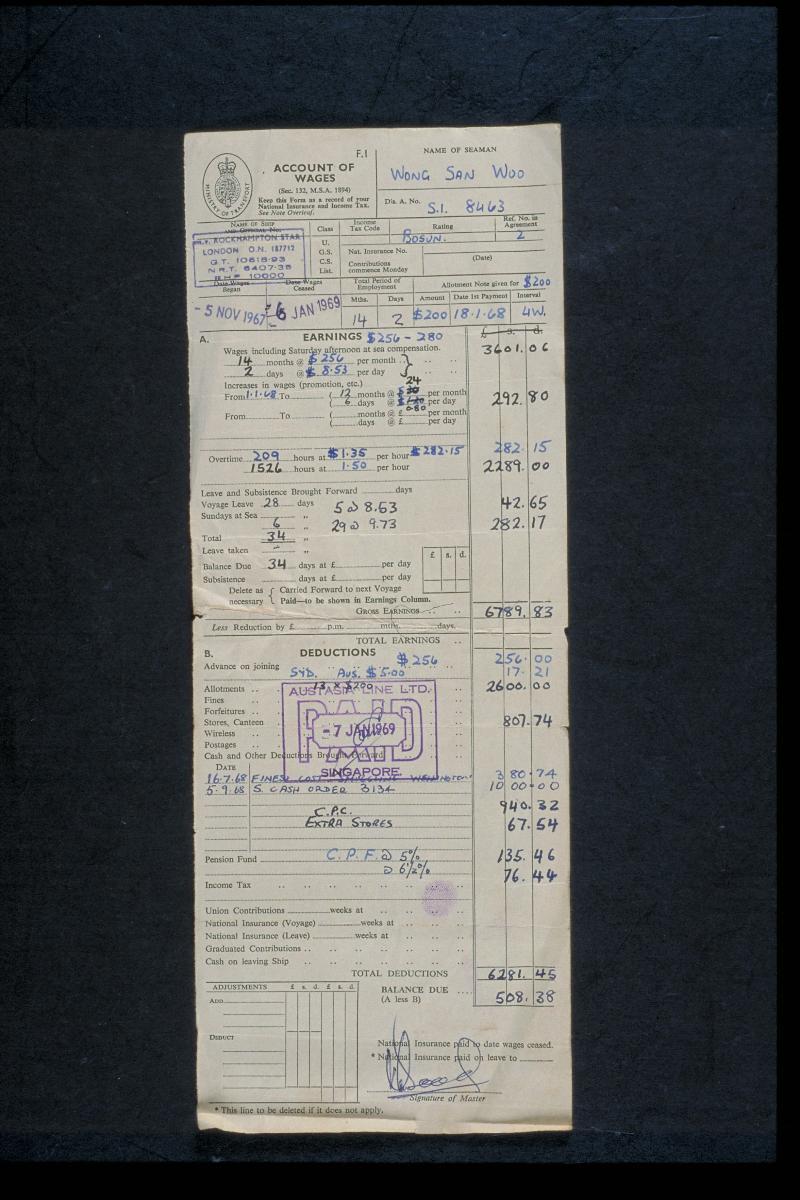 F.1
MINISTRY OF TRANSPORT
ACCOUNT OF
WAGES
(Sec. 132, M.S.A. 1894)
Keep this Form as a record of your
National Insurance and Income Tax.
See Note Overleaf.
NAME OF SEAMAN
WONG SAN WOO
Dis. A. No. S.I. 8463
NAME OF SHIP
AND OFFICIAL NO.
M.V. ROCKHAMPTON STAR
LONDON O.N. 187712
G.T. 10618·93
N.R.T. 6407·38
B.H.P. 10000
Class
U.
G.S.
C.S.
List.
Income
Tax Code
Rating
BOSUN.
Ref. No. in
Agreement
2
Nat. Insurance No.
Contributions
commence Monday
(Date)
Date Wages
Began
Date Wages
Ceased
Total Period of
Employment
Allotment Note given for $200
Mths. Days Amount Date 1st Payment Interval
- 5 NOV 1967 6 JAN 1969 14 2 $200 18·1·68 4W.
A. EARNINGS $256 - 280 £ s. d.
Wages including Saturday afternoon at sea compensation. 3601.06
14 months @ $256 per month
2 days @ $8·53 per day
Increases in wages (promotion, etc.) 24
From 1·1·68 To ( 12 months @ $ 30 per month
( 6 days @ $ per day 292.80
0·80
From To ( months @ £ per month
( days @ £ per day
282·15
Overtime 209 hours at $1·35 per hour $282·15
1526 hours at 1·50 per hour 2289.00
Leave and Subsistence Brought Forward days
Voyage Leave 28 days 5 @ 8.53 42.65
Sundays at Sea
6 „ 29 @ 9.73 282.17
Total 34 „
Leave taken - „
£ s. d.
Balance Due 34 days at £ per day
Subsistence days at £ per day
Delete as { Carried Forward to next Voyage
necessary { Paid—to be shown in Earnings Column.
GROSS EARNINGS 6789.83
Less Reduction by £ p.m. mths. days.
TOTAL EARNINGS
B. DEDUCTIONS
Advance on joining $256 256·00
SYD. Aus. $5·00 17·21
Allotments 13 x $200 2600.00
Fines
Forfeitures
Stores, Canteen 807.74
Wireless
Postages
Cash and Other Deductions Brought Forward
AUSTASIA LINE LTD.
PAID
- 7 JAN 1969
SINGAPORE.
DATE
16·7·68 FINES COST WELLINGTON 380·74
5·9·68 S. CASH ORDER 3134 1000·00
C.P.C. 940.32
EXTRA STORES 67.54
Pension Fund C.P.F. @ 5% 135.46
@ 6½% 76.44
Income Tax
Union Contributions weeks at
National Insurance (Voyage) weeks at
National Insurance (Leave) weeks at
Graduated Contributions
Cash on leaving Ship
TOTAL DEDUCTIONS 6281.45
BALANCE DUE 508.38
(A less B)
ADJUSTMENTS £ s. d. £ s. d.
ADD
DEDUCT
National Insurance paid to date wages ceased.
* National Insurance paid on leave to
Signature of Master
* This line to be deleted if it does not apply.